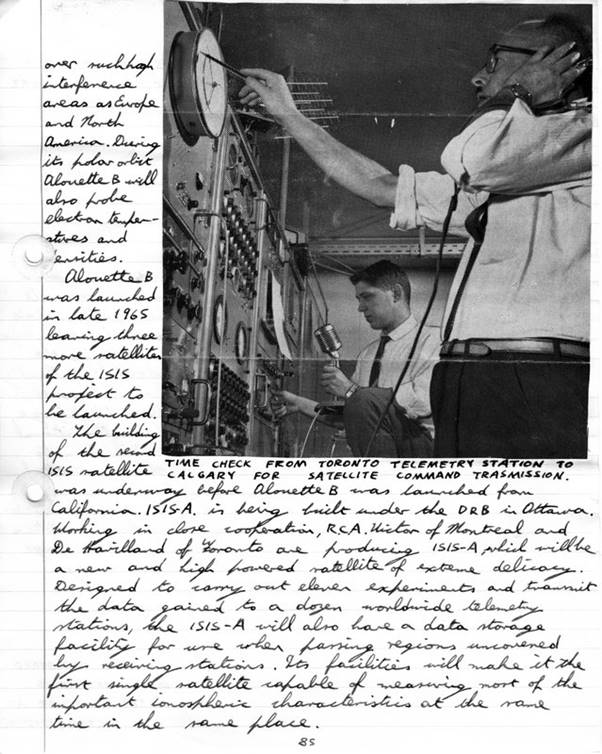 over such high
interference
areas as Europe
and North
America. During
its polar orbit
Alouette B will
also probe
electron temper-
atures and
densities.
Alouette B
was launched
in late 1965
leaving three
more satellites
of the ISIS
project to
be launched.
The building
of the second
ISIS satellite
TIME CHECK FROM TORONTO TELEMETRY STATION TO
CALGARY FOR SATELLITE COMMAND TRASMISSION.
was underway before Alouette B was launched from
California. ISIS-A. is being built under the DRB in Ottawa.
Working in close cooperation, R.C.A. Victor of Montreal and
De Havilland of Toronto are producing ISIS-A which will be
a new and high powered satellite of extreme delicacy.
Designed to carry out eleven experiments and transmit
the data gained to a dozen worldwide telemetry
stations, the ISIS-A will also have a data storage
facility for use when passing regions uncovered
by receiving stations. Its facilities will make it the
first single satellite capable of measuring most of the
important ionospheric characteristics at the same
time in the same place.
85